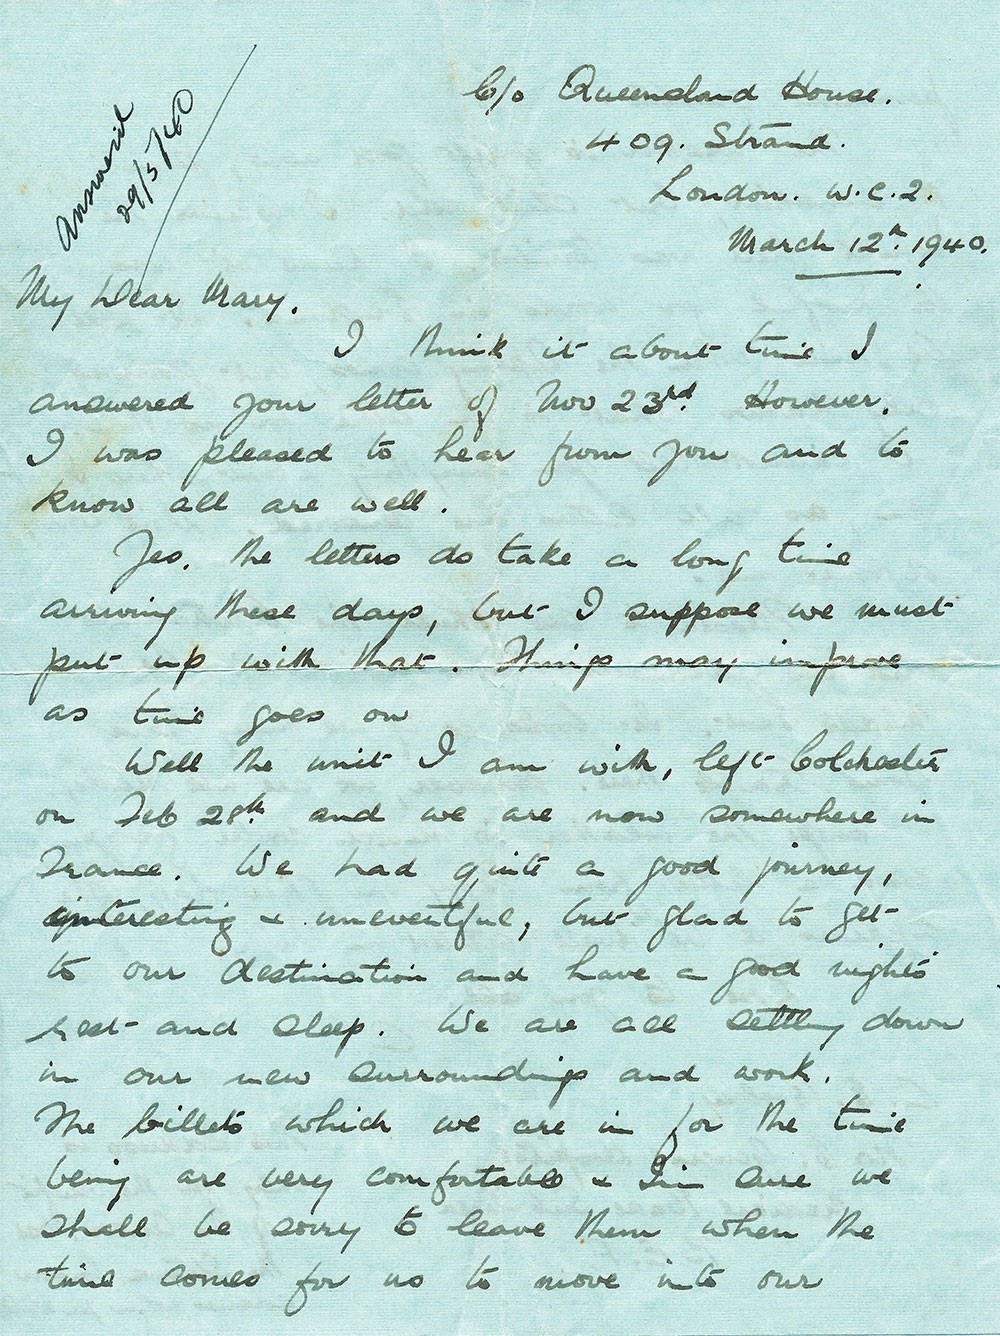 C/o Queensland House.
409. Strand.
London. W.C.2.
March 12th. 1940.
Answered
29/5/40
My Dear Mary.
I think it about time I
answered your letter of Nov 23rd. However,
I was pleased to hear from you and to
know all are well.
Yes, the letters do take a long time
arriving these days, but I suppose we must
put up with that. Things may improve
as time goes on
Well the unit I am with, left Colchester
on Feb 28th and we are now somewhere in
France. We had quite a good journey,
interesting & uneventful, but glad to get
to our destination and have a good nights
rest and sleep. We are all settling down
in our new surroundings and work.
The billets which we are in for the time
being are very comfortable & I'm sure we
shall be sorry to leave them when the
time comes for us to move into our